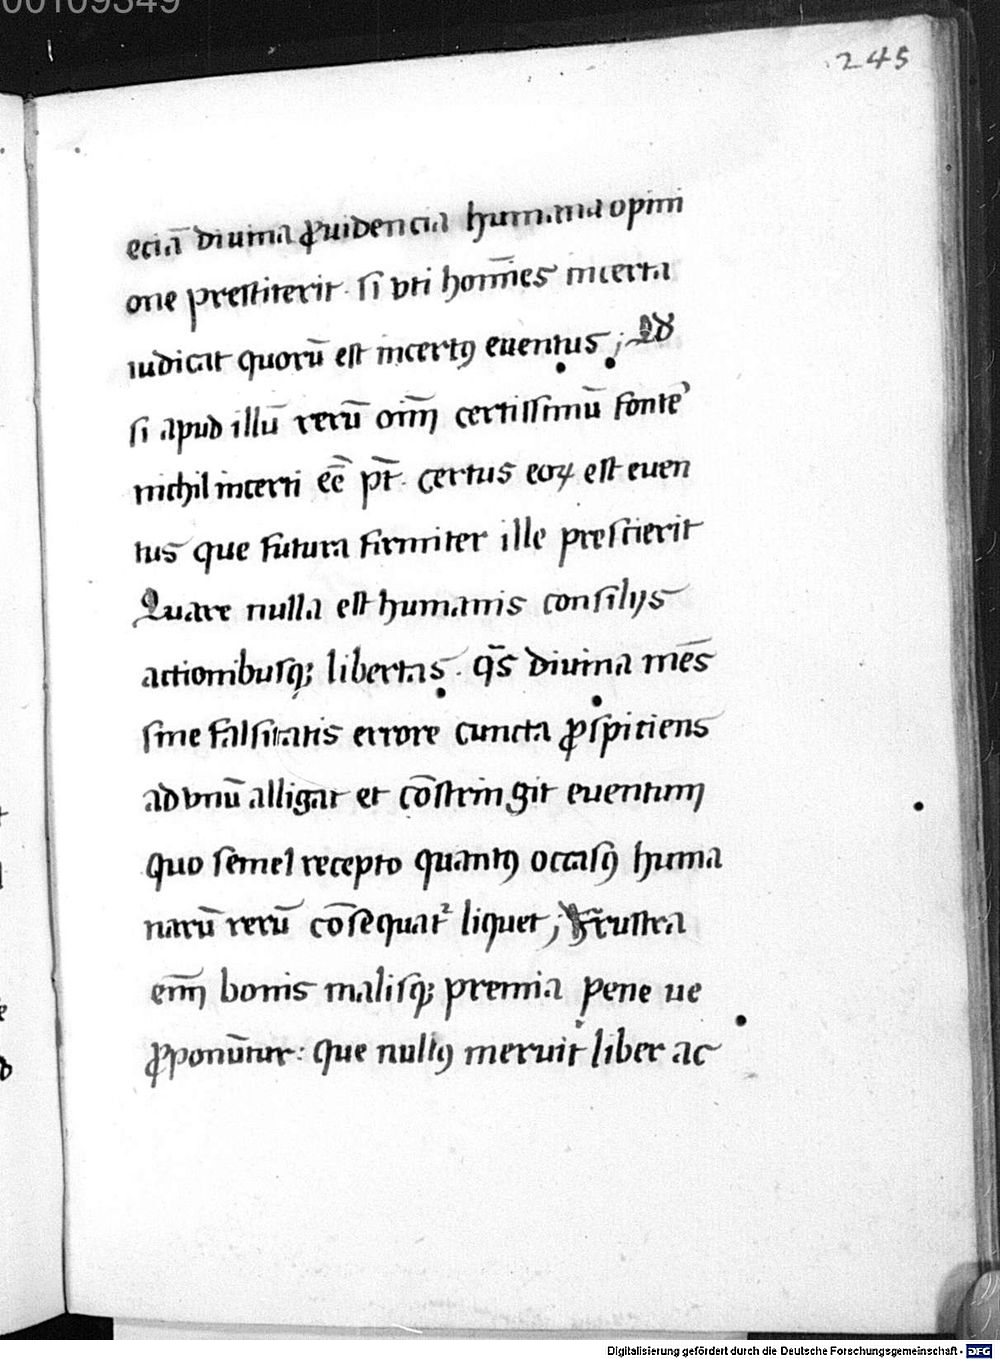 00109349
245
eciā diuina ꝓuidencia humana opini
one prestiterit · si vti hom̄ies incerta
iudicat quorū est incertꝯ euentus ; Qd
si apud illū rerū oīm certissimū fonte
nichil incerti eē pt̄ · certus eoꝝ est euen
tus que futura firmiter ille prescierit
Quare nulla est humanis consilijs
actionibusqꝫ libertas · qs̄ diuina mēs
sine falsitatis errore cuncta ꝓspitiens
ad vnū alligat et cōstringit euentum
quo semel recepto quantꝯ occasꝯ huma
narū rerū cōsequat² liquet ; Frustra
enī bonis malisqꝫ premia pene ue
ꝓponūtur : que nullꝯ meruit liber ac
Digitalisierung gefördert durch die Deutsche Forschungsgemeinschaft - DFG